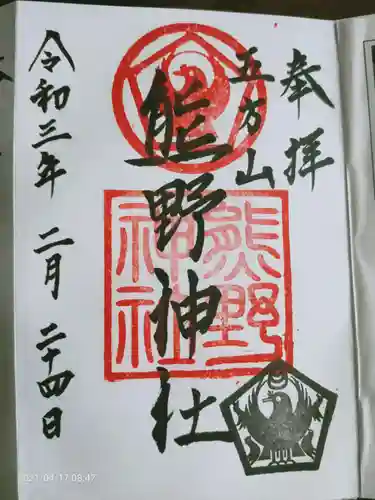 奉拝
五方山
熊野神社
熊野
神社
令和三年 二月 二十四日